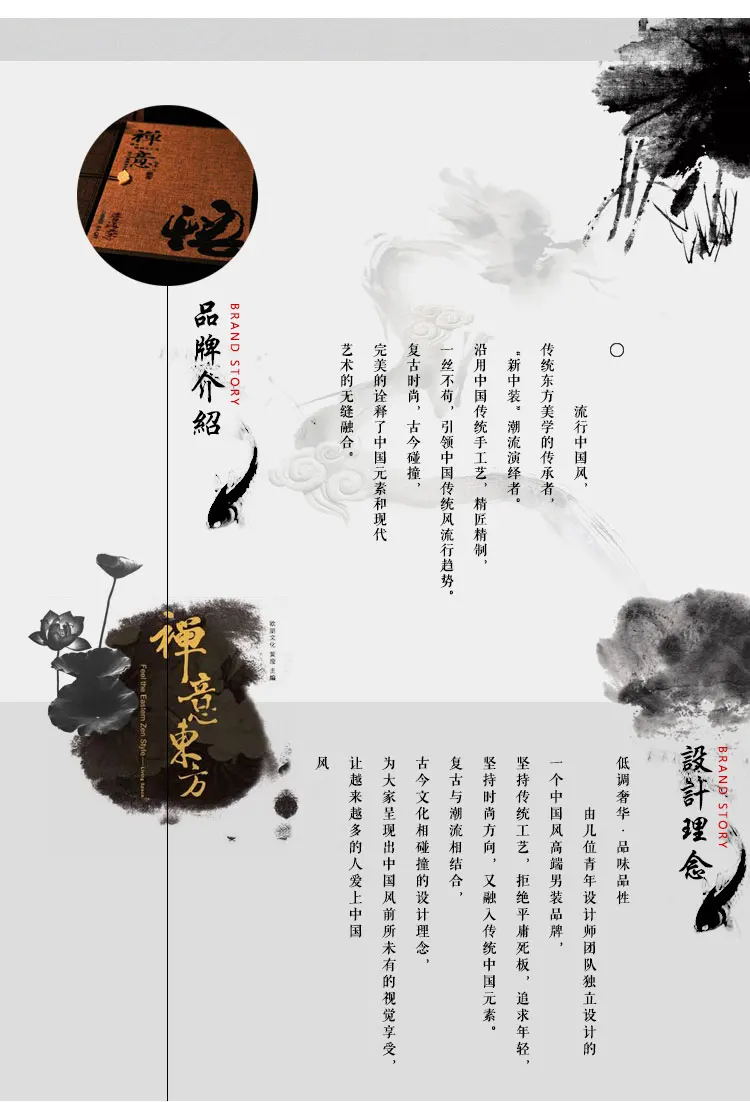 禅意
品牌介紹
BRAND STORY
流行中国风，
传统东方美学的传承者，
“新中装”潮流演绎者。
沿用中国传统手工艺，精匠精制，
一丝不苟，引领中国传统风流行趋势。
复古时尚，古今碰撞，
完美的诠释了中国元素和现代
艺术的无缝融合。
禪意東方
Feel the Eastern Zen Style——Living Space
設計理念
BRAND STORY
低调奢华·品味品性
由几位青年设计师团队独立设计的
一个中国风高端男装品牌，
坚持传统工艺，拒绝平庸死板，追求年轻，
坚持时尚方向，又融入传统中国元素。
复古与潮流相结合，
古今文化相碰撞的设计理念，
为大家呈现出中国风前所未有的视觉享受，
让越来越多的人爱上中国
风